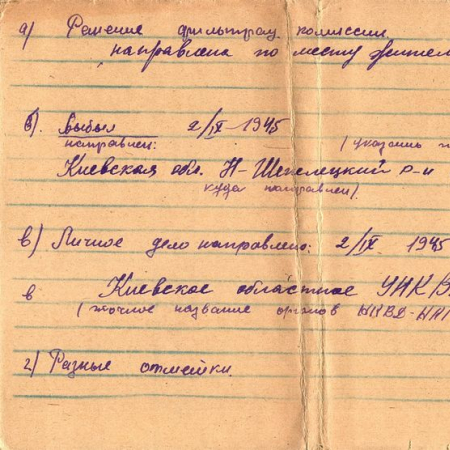 а) Решение фильтрац. комиссии
направлена по месту жител
б). Выбыл 2/IX - 1945
направлен: (указать
Киевская обл. Н-Шепелецкий р-н
куда направлен).
в) Личное дело направлено: 2/IX 1945
в Киевское областное
(точное название органов НКВД-НКГ
г) Разные отметки.